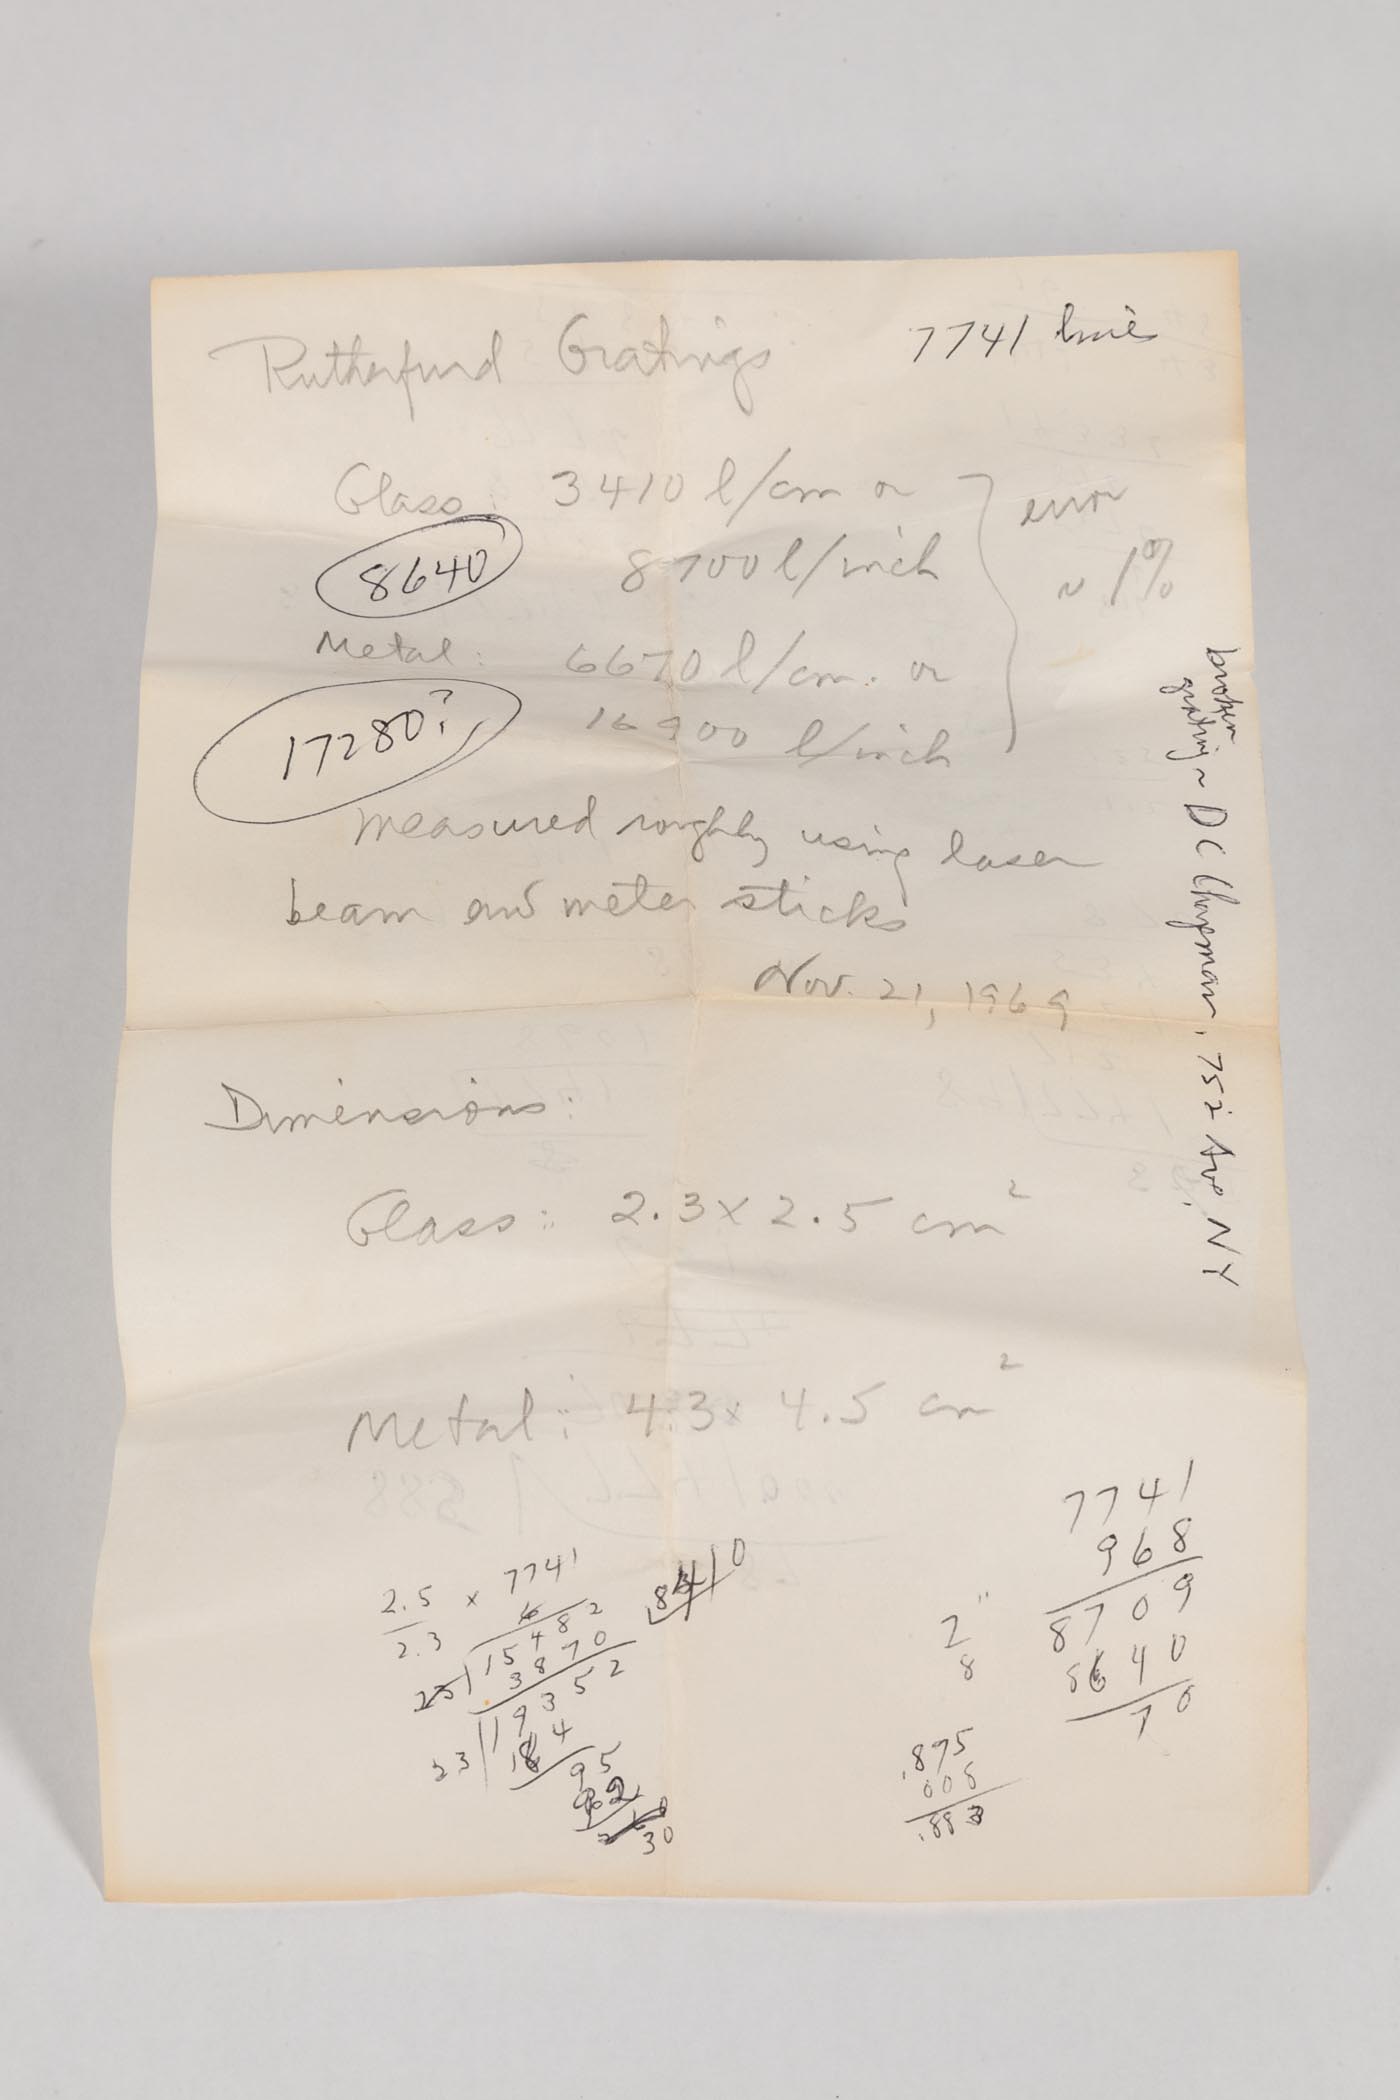 Rutherfurd Gratings
7741 lines
Glass: 3410 l/cm or
8640
8700 l/inch
error
~ 1%
Metal: 6670 l/cm. or
17280?
16900 l/inch
measured roughly using laser
beam and meter sticks
Nov. 21, 1969
broken
grating ~ DC Chapman, 75 2 Ave, NY
Dimensions:
Glass: 2.3 x 2.5 cm²
Metal: 4.3 x 4.5 cm²
2.5 x 7741
2.3
15482
3870
19352
23
95
30
8410
2"
8
7741
968
8709
8640
70
.875
008
.883